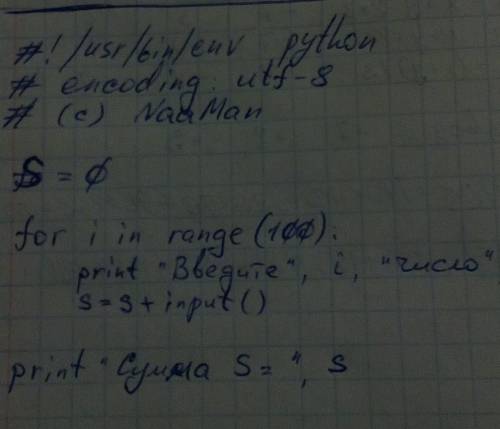 #!/usr/bin/env python
# encoding: utf-8
# (c) NaaMan
S = 0
for i in range (100):
print "Введите", i, "число"
s = s + input ()
print "Сумма S = ", s